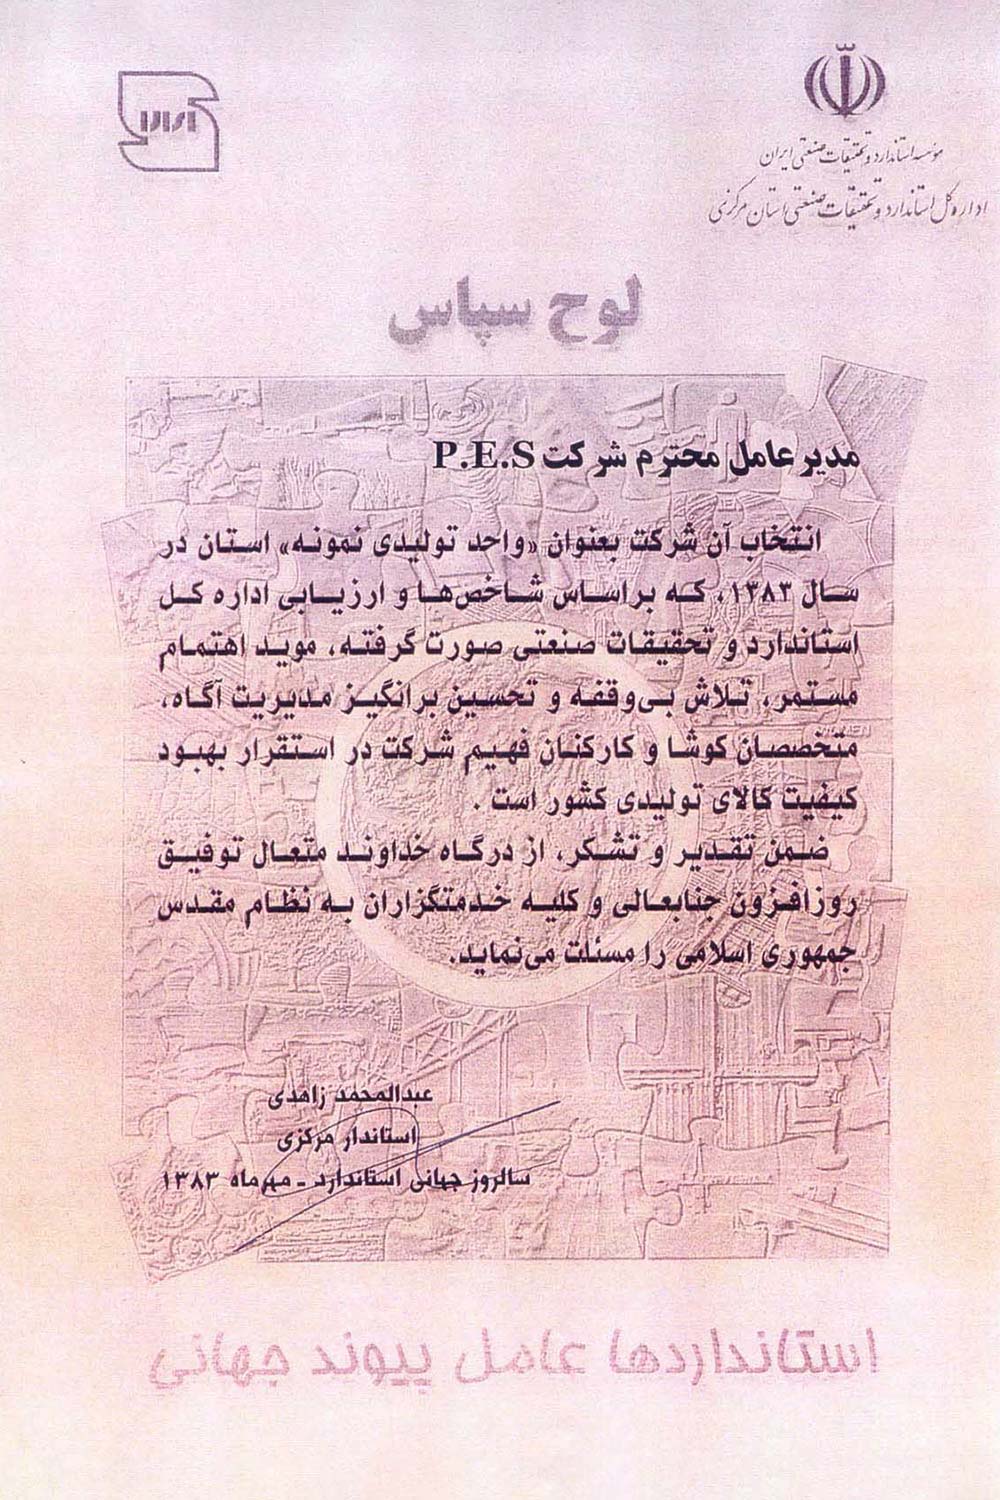 موسسه استاندارد و تحقیقات صنعتی ایران
اداره کل استاندارد و تحقیقات صنعتی استان مرکزی
لوح سپاس
مدیر عامل محترم شرکت P.E.S
انتخاب آن شرکت بعنوان «واحد تولیدی نمونه» استان در
سال ۱۳۸۳، که براساس شاخص‌ها و ارزیابی اداره کل
استاندارد و تحقیقات صنعتی صورت گرفته، موید اهتمام
مستمر، تلاش بی‌وقفه و تحسین برانگیز مدیریت آگاه،
متخصصان کوشا و کارکنان فهیم شرکت در استقرار بهبود
کیفیت کالای تولیدی کشور است .
ضمن تقدیر و تشکر، از درگاه خداوند متعال توفیق
روزافزون جنابعالی و کلیه خدمتگزاران به نظام مقدس
جمهوری اسلامی را مسئلت می‌نماید.
عبدالمحمد زاهدی
استاندار مرکزی
سالروز جهانی استاندارد - مهرماه ۱۳۸۳
استانداردها عامل پیوند جهانی